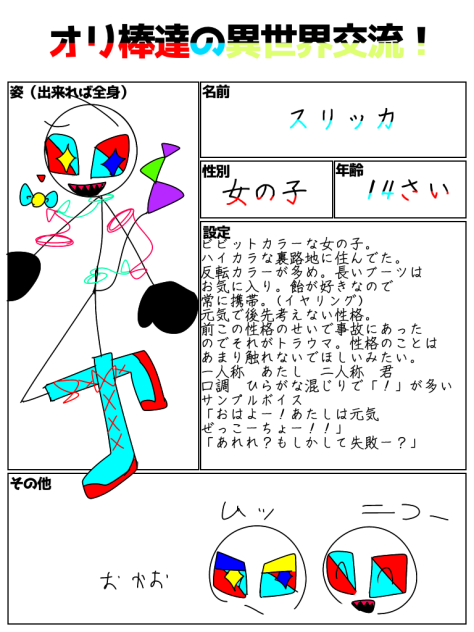 オリ棒達の異世界交流！
姿（出来れば全身）
名前
スリッカ
性別
女の子
年齢
14さい
設定
ビビットカラーな女の子。
ハイカラな裏路地に住んでた。
反転カラーが多め。長いブーツは
お気に入り。飴が好きなので
常に携帯。(イヤリング)
元気で後先考えない性格。
前この性格のせいで事故にあった
のでそれがトラウマ。性格のことは
あまり触れないでほしいみたい。
一人称　あたし　二人称　君
口調　ひらがな混じりで「！」が多い
サンプルボイス
「おはよー！あたしは元気
ぜっこーちょー！！」
「あれれ？もしかして失敗ー？」
その他
おかお
ムッ
ニコー